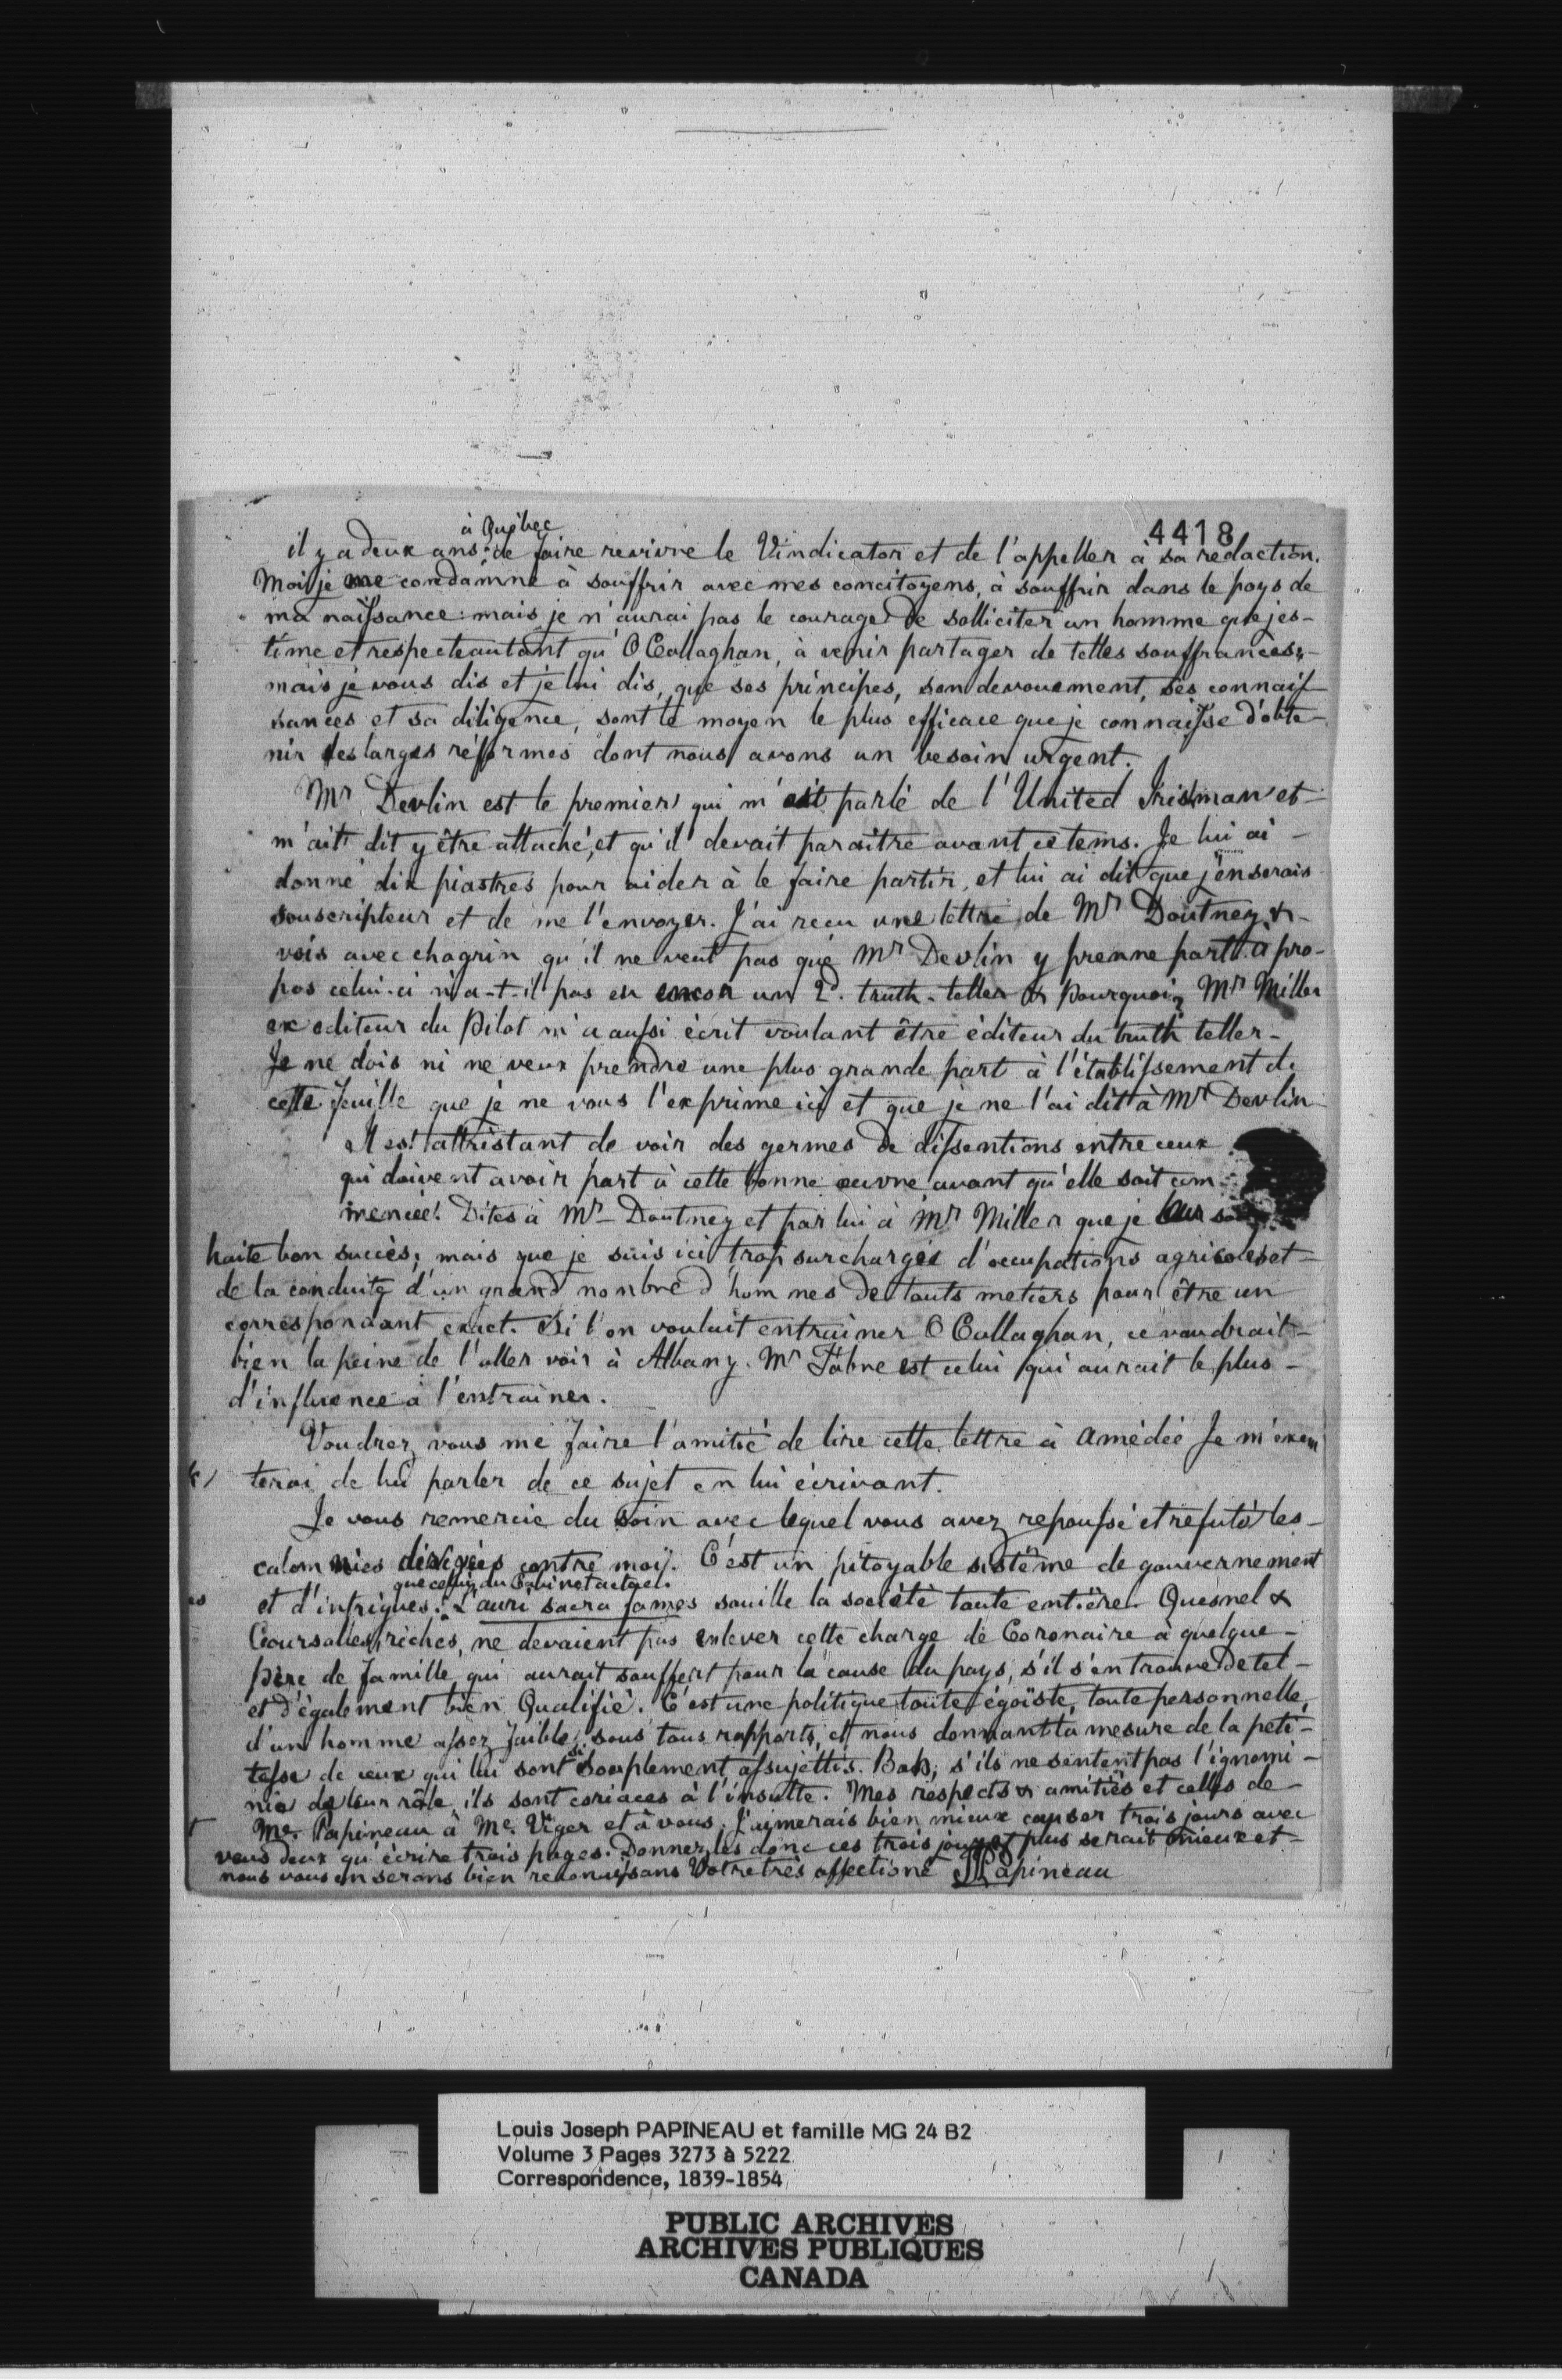 4418
à Québec
il y a deux ans de faire revivre le Vindicator et de l'appeller à sa redaction.
Moi je me condamne à souffrir avec mes concitoyens, à souffrir dans le pays de
ma naissance: mais je n'aurai pas le courage de solliciter un homme que j'es-
time et respecte autant qu'O Callaghan, à venir partager de telles souffrances,-
mais je vous dis et je lui dis, que ses principes, son devouement, ses connais
sances et sa diligence, sont le moyen le plus efficace que je connaisse d'obte-
nir les larges réformes dont nous avons un besoin urgent.
Mr Devlin est le premier qui m'ait parlé de l'United Irishman et-
m'ait dit y être attaché, et qu'il devait paraitre avant ce tems. Je lui ai -
donné dix piastres pour aider à le faire partir, et lui ai dit que j'en serais
souscripteur et de me l'envoyer. J'ai recu une lettre de Mr Doutney &-
vois avec chagrin qu'il ne veut pas que Mr Devlin y prenne part. à pro-
pos celui-ci n'a-t-il pas eu encor un 2d. truth-teller & Pourquoi? Mr Miller
ex editeur du Pilot m'a aussi écrit voulant être éditeur du truth teller-
Je ne dois ni ne veux prendre une plus grande part à l'établissement de
cette feuille que je ne vous l'exprime ici et que je ne l'ai dit à Mr Devlin
Il est attristant de voir des germes de dissentions entre ceux
qui doivent avoir part à cette bonne œuvre avant qu'elle soit com
mencée! Dites à Mr Doutney et par lui à Mr Miller que je leur sou
haite bon succès; mais que je suis ici trop surchargée d'occupations agricoles et-
de la conduite d'un grand nombre d'hommes de touts metiers pour être un
correspondant exact. Si l'on voulait entrainer O Callaghan, ce vaudrait-
bien la peine de l'aller voir à Albany. Mr Fabre est celui qui aurait le plus-
d'influence à l'entrainer.
Voudrez vous me faire l'amitié de lire cette lettre à Amédée Je m'exem
terai de lui parler de ce sujet en lui écrivant.
Je vous remercie du soin avec lequel vous avez repoussé et refuté les-
calomnies dirigées contre moi. C'est un pitoyable sistême de gouvernement
que celui du Cabinet actuel.
et d'intrigues. L'auri sacra fames souille la société toute entière. Quesnel &
Coursolles, riches, ne devaient pas enlever cette charge de Coronaire à quelque-
père de famille, qui aurait souffert pour la cause du pays, s'il s'en trouve de tel-
et d'également bien Qualifié. C'est une politique toute égoïste, toute personnelle,
d'un homme assez faible, sous tous rapports, et nous donnant la mesure de la peti-
tesse de ceux qui lui sont si souplement assujettis. Bah, s'ils ne sentent pas l'ignomi-
nie de leur rôle, ils sont coriaces à l'insulte. Mes respects & amitiés et celles de-
Me. Papineau à Me. Viger et à vous. J'aimerais bien mieux causer trois jours avec
vous deux qu'écrire trois pages. Donnez les donc ces trois jours et plus serait mieux et-
nous vous en serons bien reconnaissans Votre très affectioné LJPapineau
Louis Joseph PAPINEAU et famille MG 24 B2
Volume 3 Pages 3273 à 5222
Correspondence, 1839-1854
PUBLIC ARCHIVES
ARCHIVES PUBLIQUES
CANADA